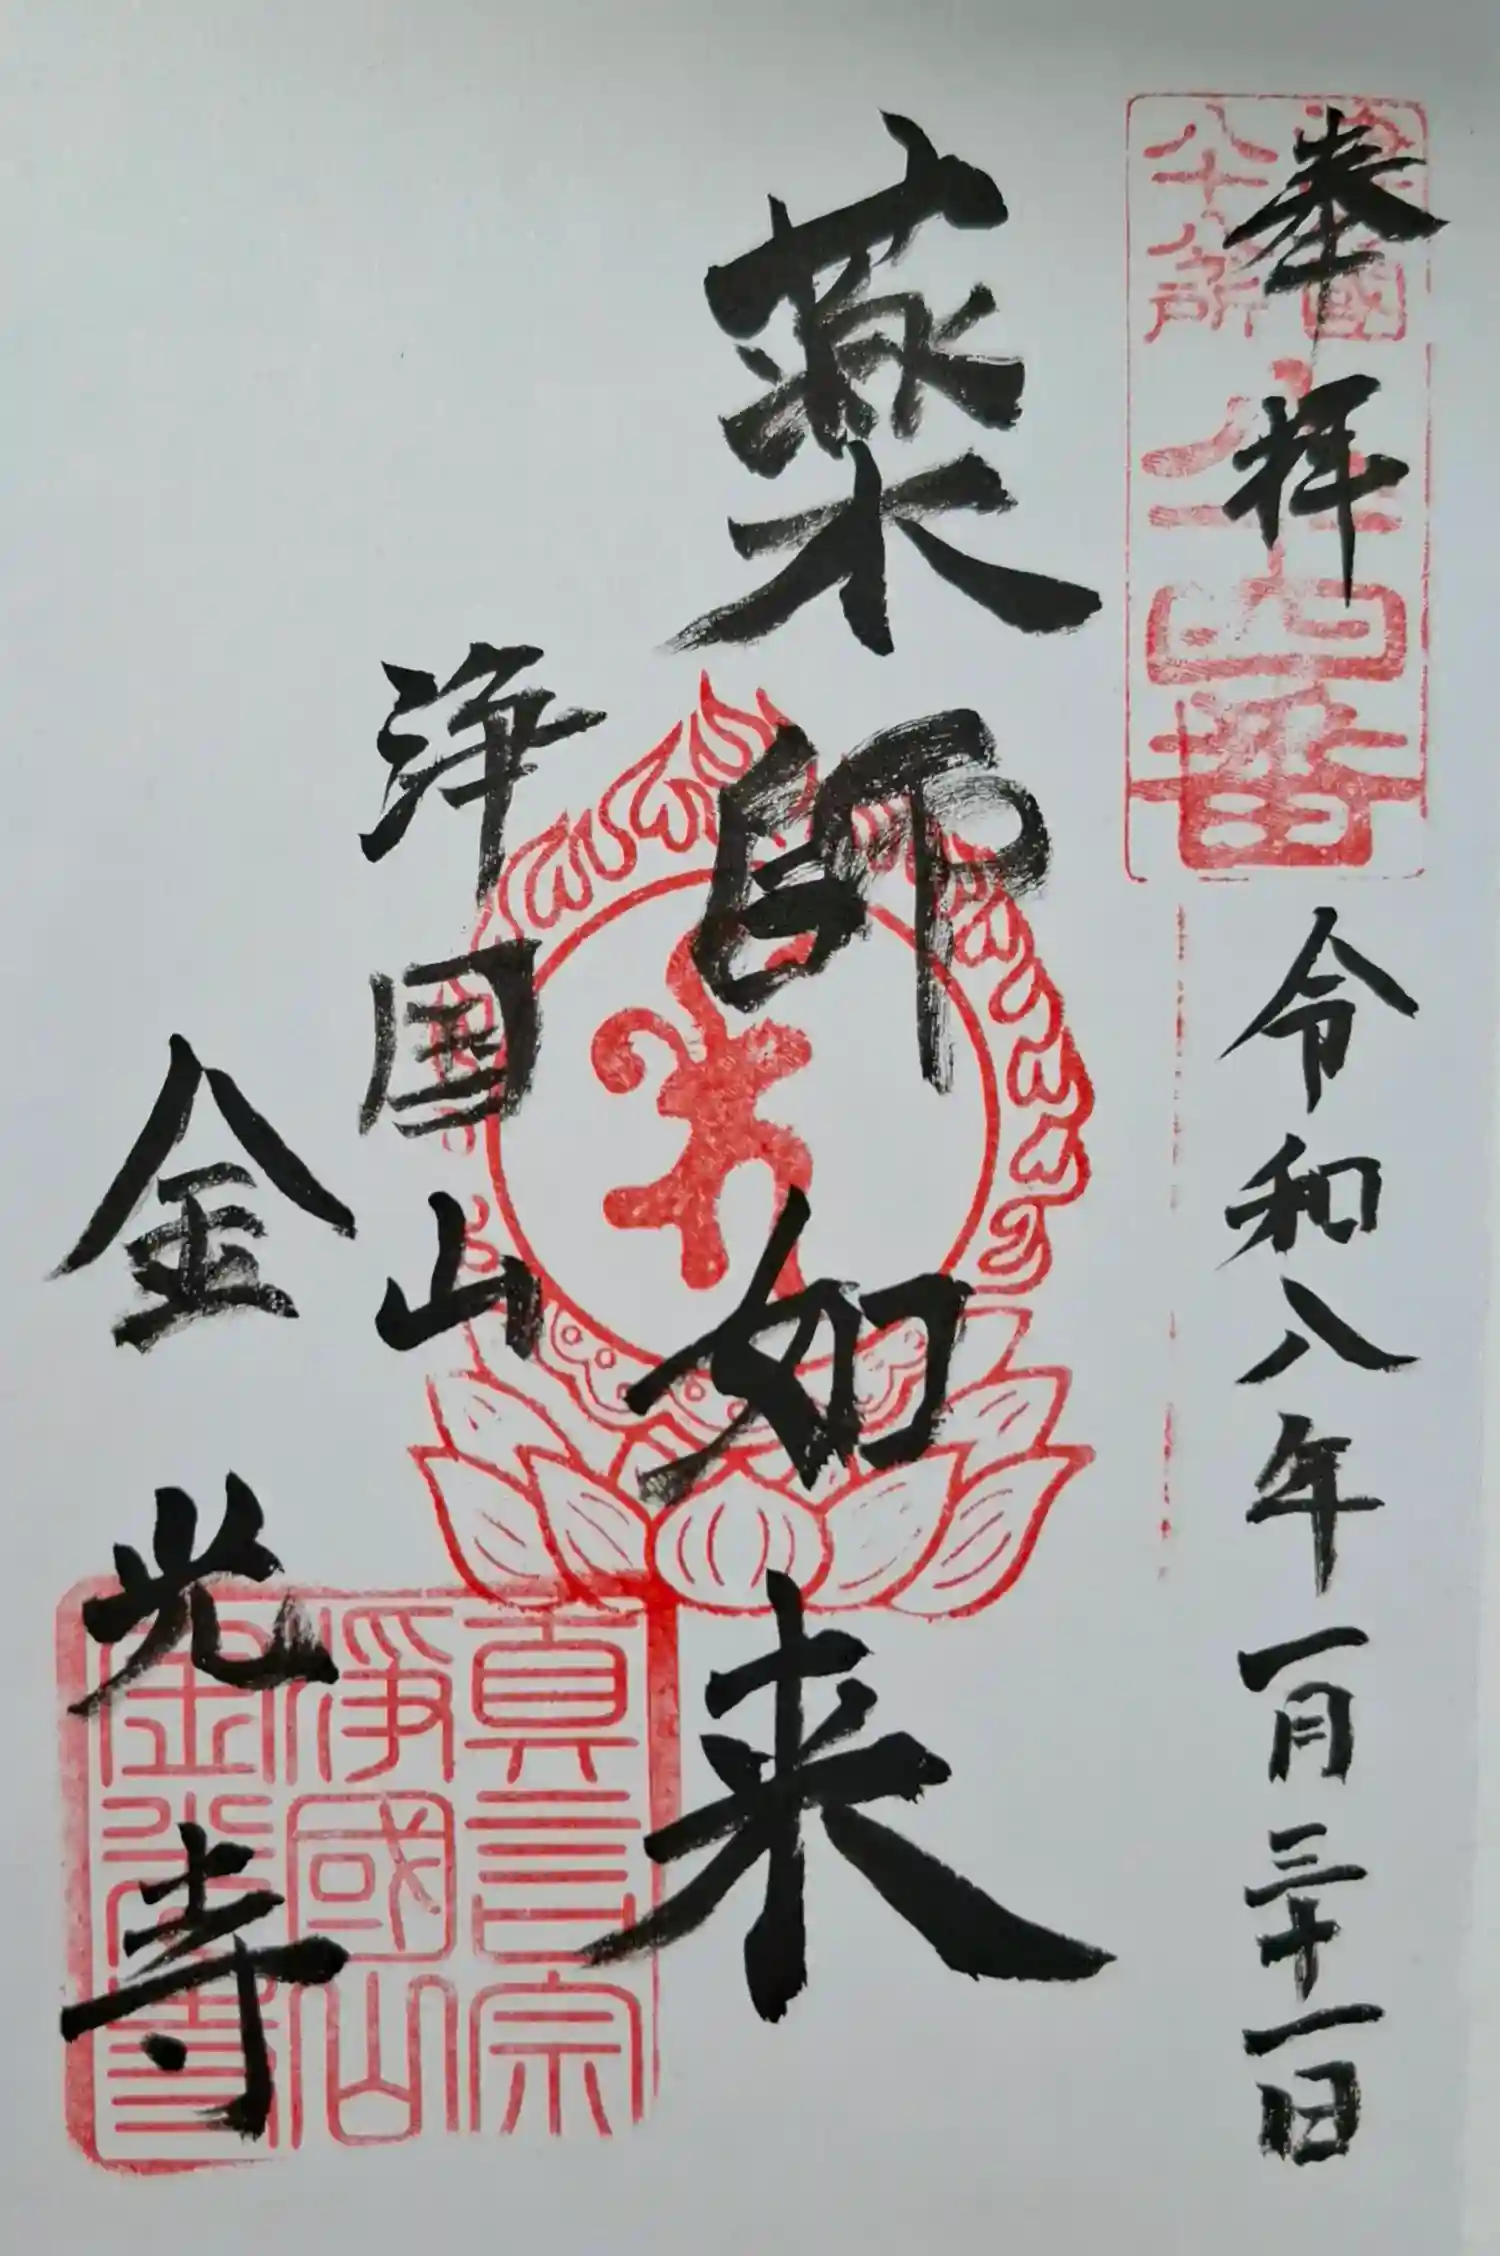 奉拝 令和八年一月三十一日
國
八十八所
四番
薬師如来
浄国山
金光寺
眞言宗
淨國山
金光寺